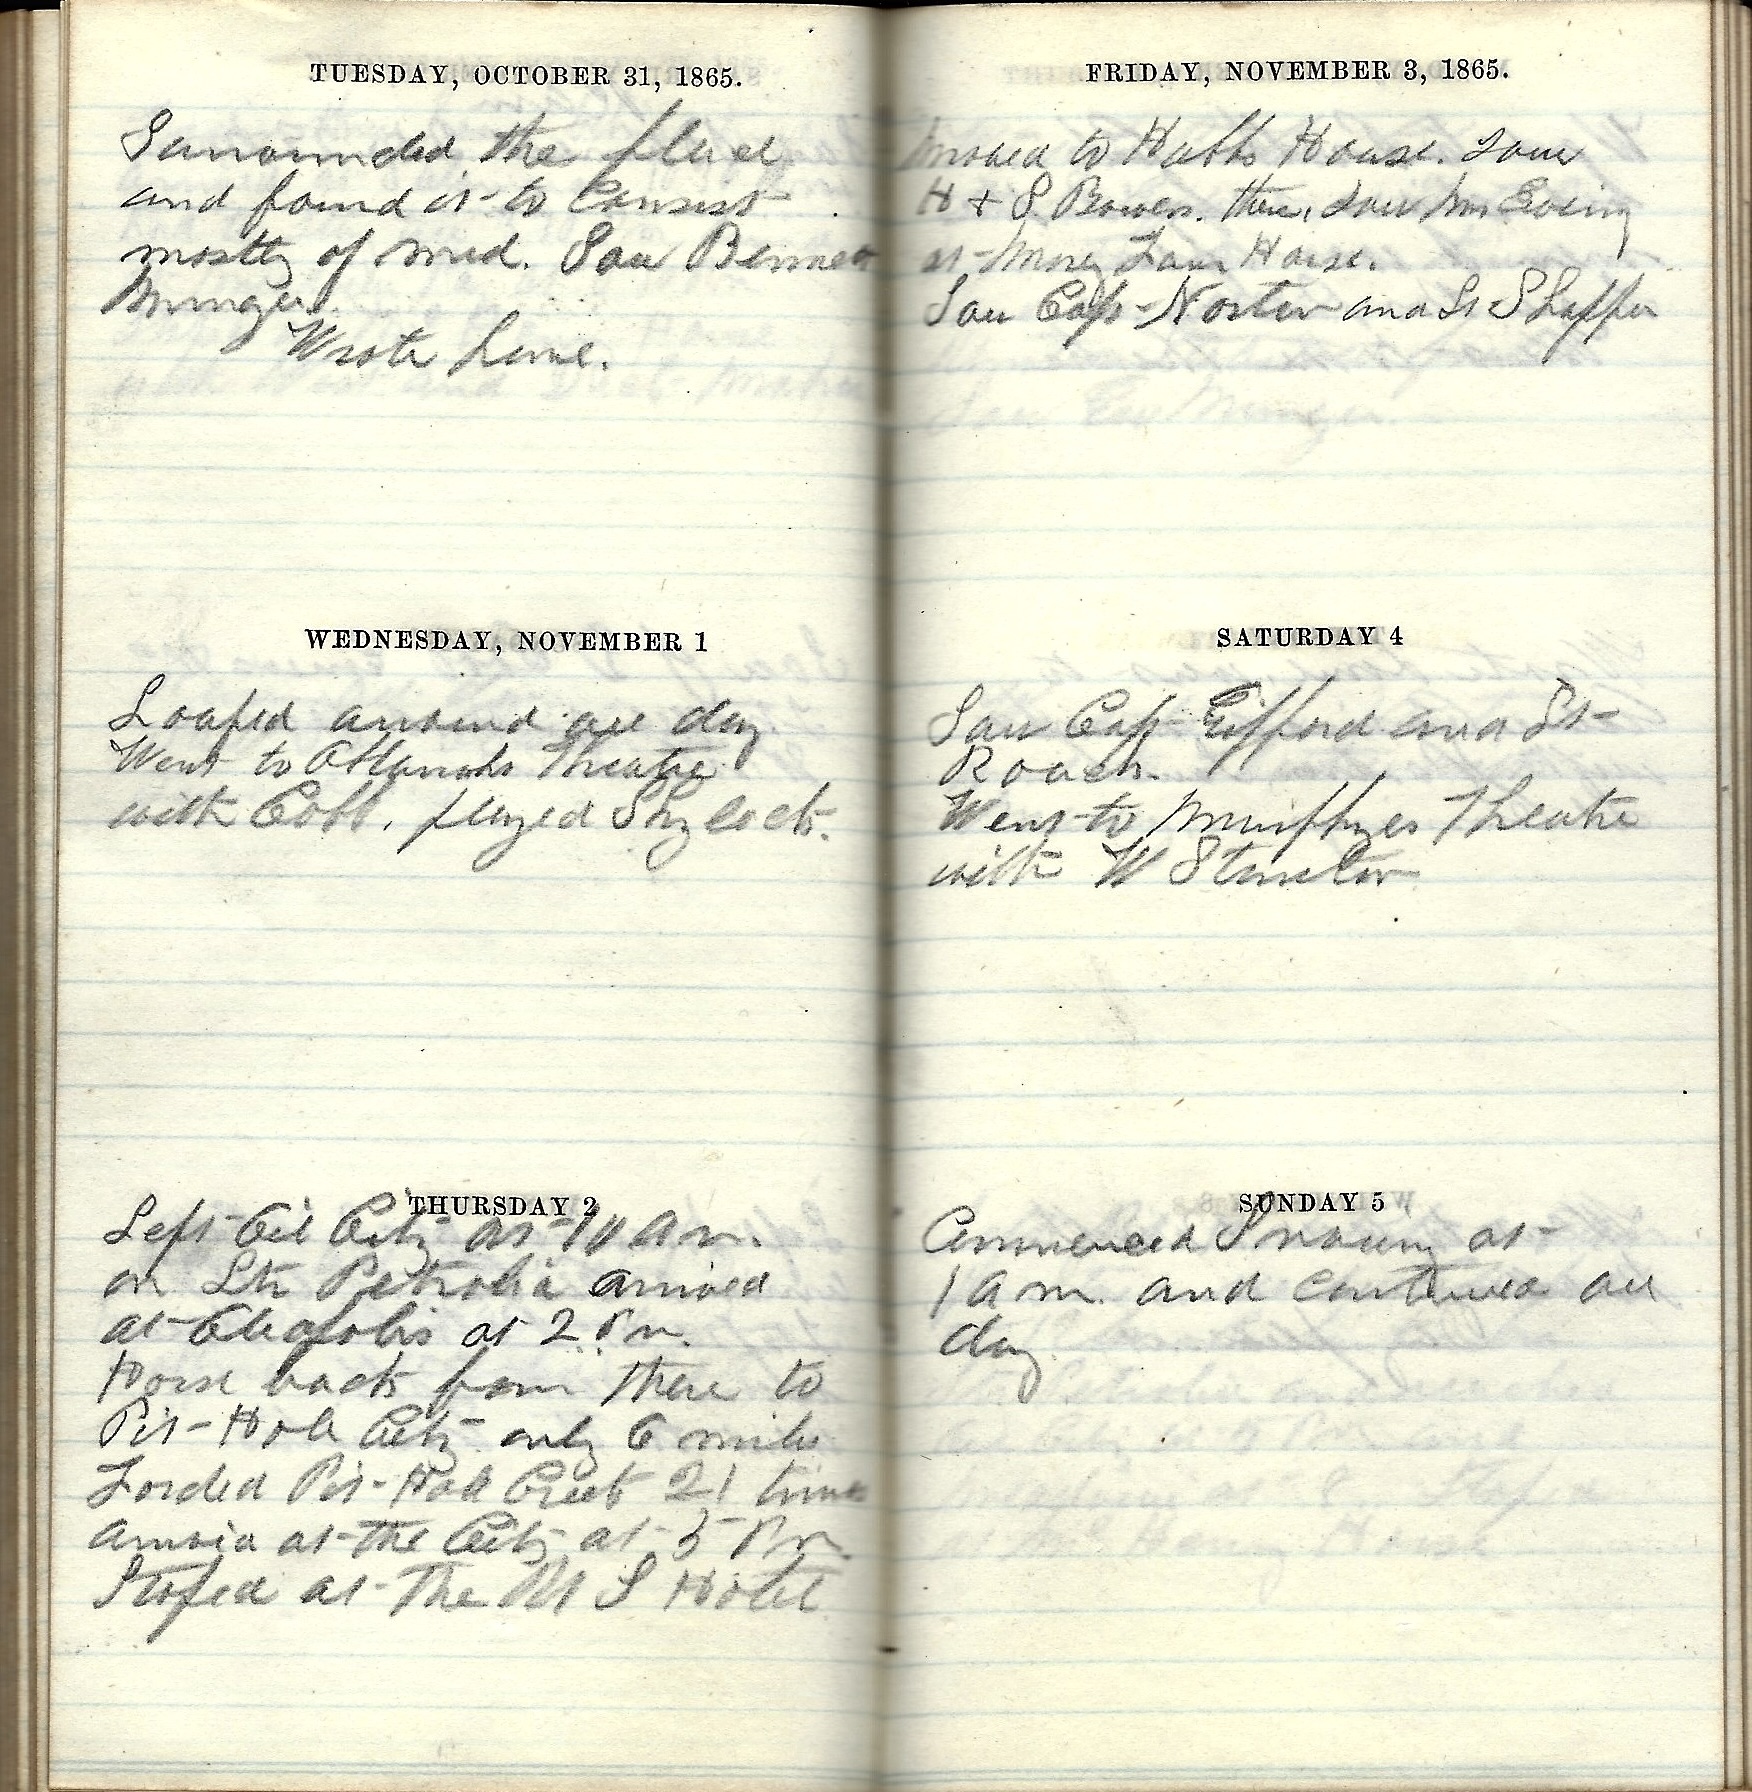 TUESDAY, OCTOBER 31, 1865.
Surrounded the place
and found it to Consist
mostly of mud. Saw Bennett
Munger.
Wrote home.
WEDNESDAY, NOVEMBER 1
Loafed around all day
Went to Theatre
with Cobb. played Shylock.
THURSDAY 2
Left Oil City at 10 am.
on Str Petrolia arrived
at Oleopolis at 2 P m.
Horse back from there to
Pit Hole City only 6 miles
Forded Pit Hole Creek 21 times
at the City at 5 P m.
Stoped at the U S Hotel
FRIDAY, NOVEMBER 3, 1865.
Moved to House. Saw
H & S. Bowen there, Saw Mr Ewing
at House.
Saw Capt Norton and Lt Shaffer
Saw Munger.
SATURDAY 4
Saw Capt Gifford and Lt
Roach.
Went to Murphyes Theatre
with W Stanton
SUNDAY 5
Commenced Snowing at
1 a m. and continued all
day